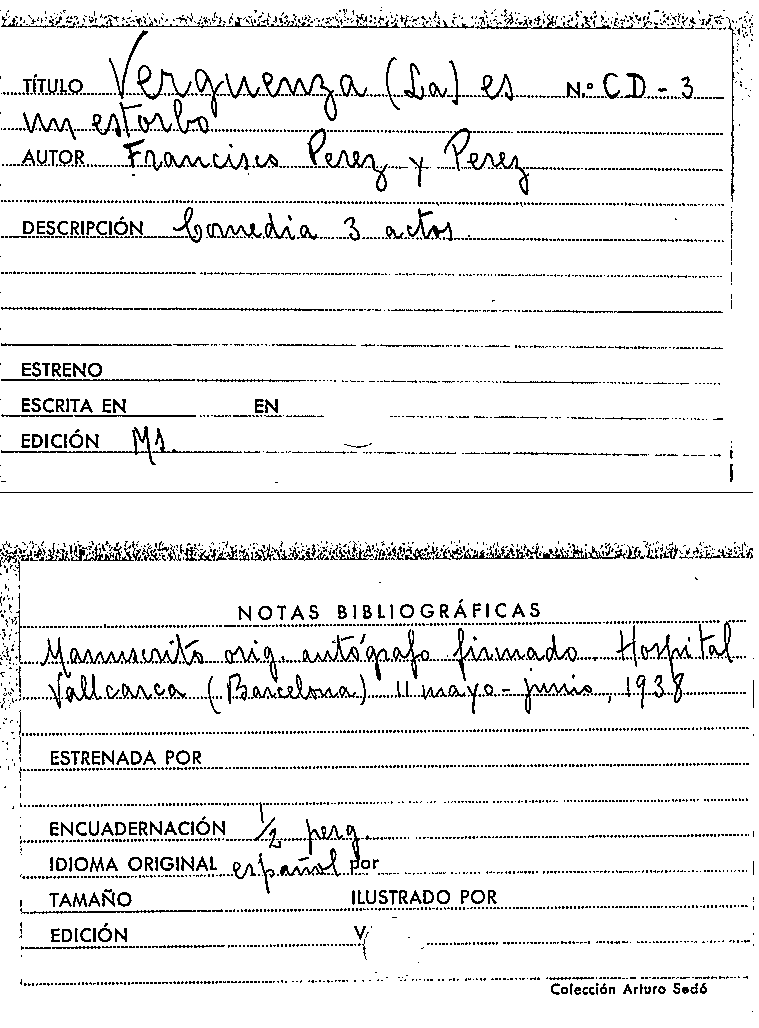 TÍTULO Verguenza (La) es N.º CD - 3
un estorbo
AUTOR Francisco Perez y Perez
DESCRIPCIÓN Comedia 3 actos.
ESTRENO
ESCRITA EN EN
EDICIÓN Ms.
NOTAS BIBLIOGRÁFICAS
Manuscrito orig. autógrafo firmado. Hospital
Vallcarca (Barcelona) 11 mayo - junio, 1938
ESTRENADA POR
ENCUADERNACIÓN 1/2 perg.
IDIOMA ORIGINAL español por
TAMAÑO ILUSTRADO POR
EDICIÓN
Colección Arturo Sedó